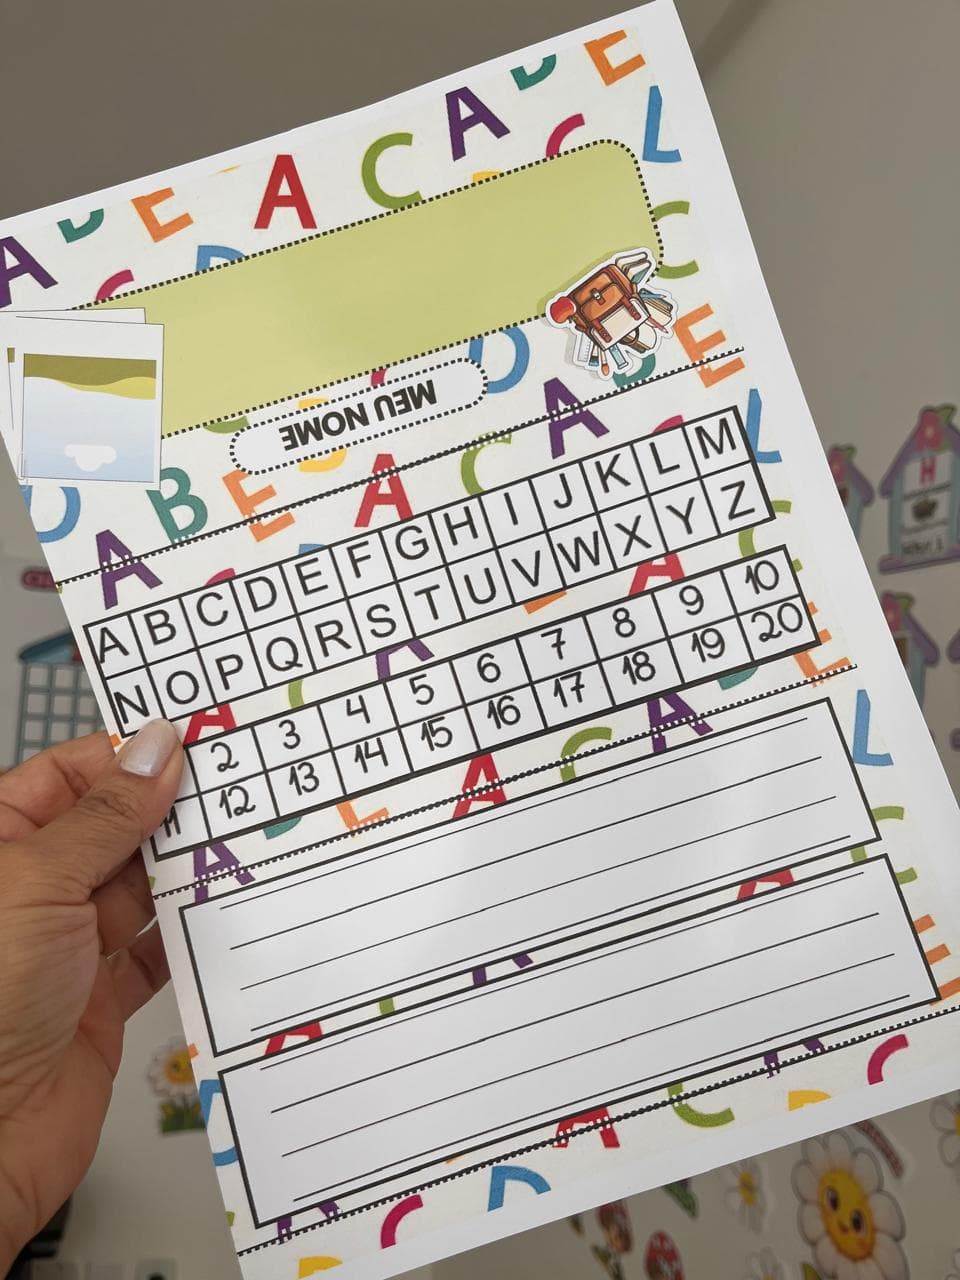 MEU NOME
A B C D E F G H I J K L M
N O P Q R S T U V W X Y Z
2 3 4 5 6 7 8 9 10
11 12 13 14 15 16 17 18 19 20